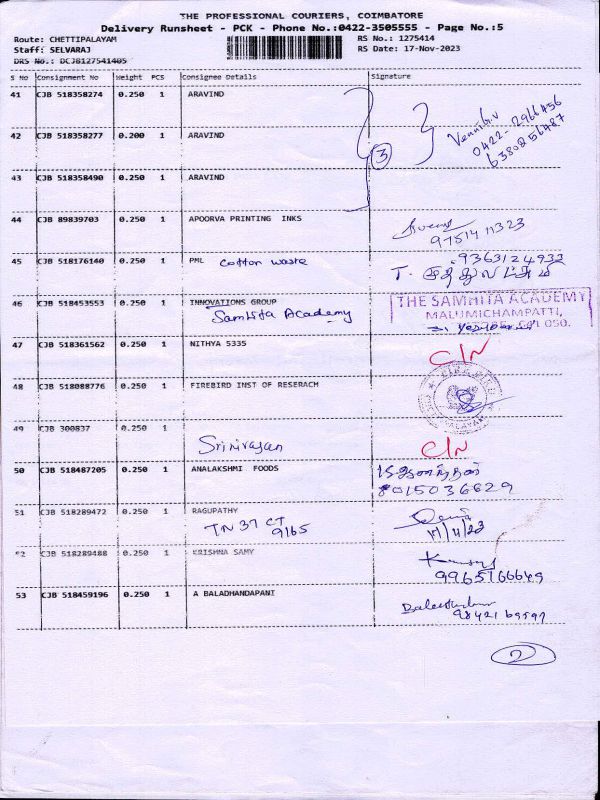 THE PROFESSIONAL COURIERS, COIMBATORE
Delivery Runsheet - PCK - Phone No.:0422-3505555 - Page No.:5
Route: CHETTIPALAYAM RS No.: 1275414
Staff: SELVARAJ RS Date: 17-Nov-2023
DRS No.: DCJB127541405
S No Consignment No Weight PCS Consignee Details Signature
41 CJB 518358274 0.250 1 ARAVIND
0422-2966456
42 CJB 518358277 0.200 1 ARAVIND
3
43 CJB 518358490 0.250 1 ARAVIND
44 CJB 89839703 0.250 1 APOORVA PRINTING INKS
45 CJB 518176140 0.250 1 PML cotton waste 9363124933
46 CJB 518453553 0.250 1 INNOVATIONS GROUP THE SAMHITA ACADEMY
Samhita Academy MALUMICHAMPATTI,
47 CJB 518361562 0.250 1 NITHYA 5335 C/N
48 CJB 518088776 0.250 1 FIREBIRD INST OF RESERACH
49 CJB 300837 0.250 1
Srinivasan C/N
50 CJB 518487205 0.250 1 ANALAKSHMI FOODS
8015036629
51 CJB 518289472 0.250 1 RAGUPATHY
TN 37 CT
9165 17/11/23
52 CJB 518289488 0.250 1 KRISHNA SAMY
53 CJB 518459196 0.250 1 A BALADHANDAPANI
2